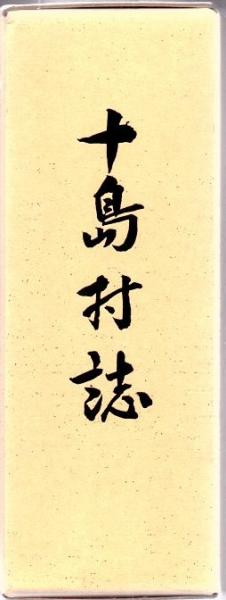 十島村誌